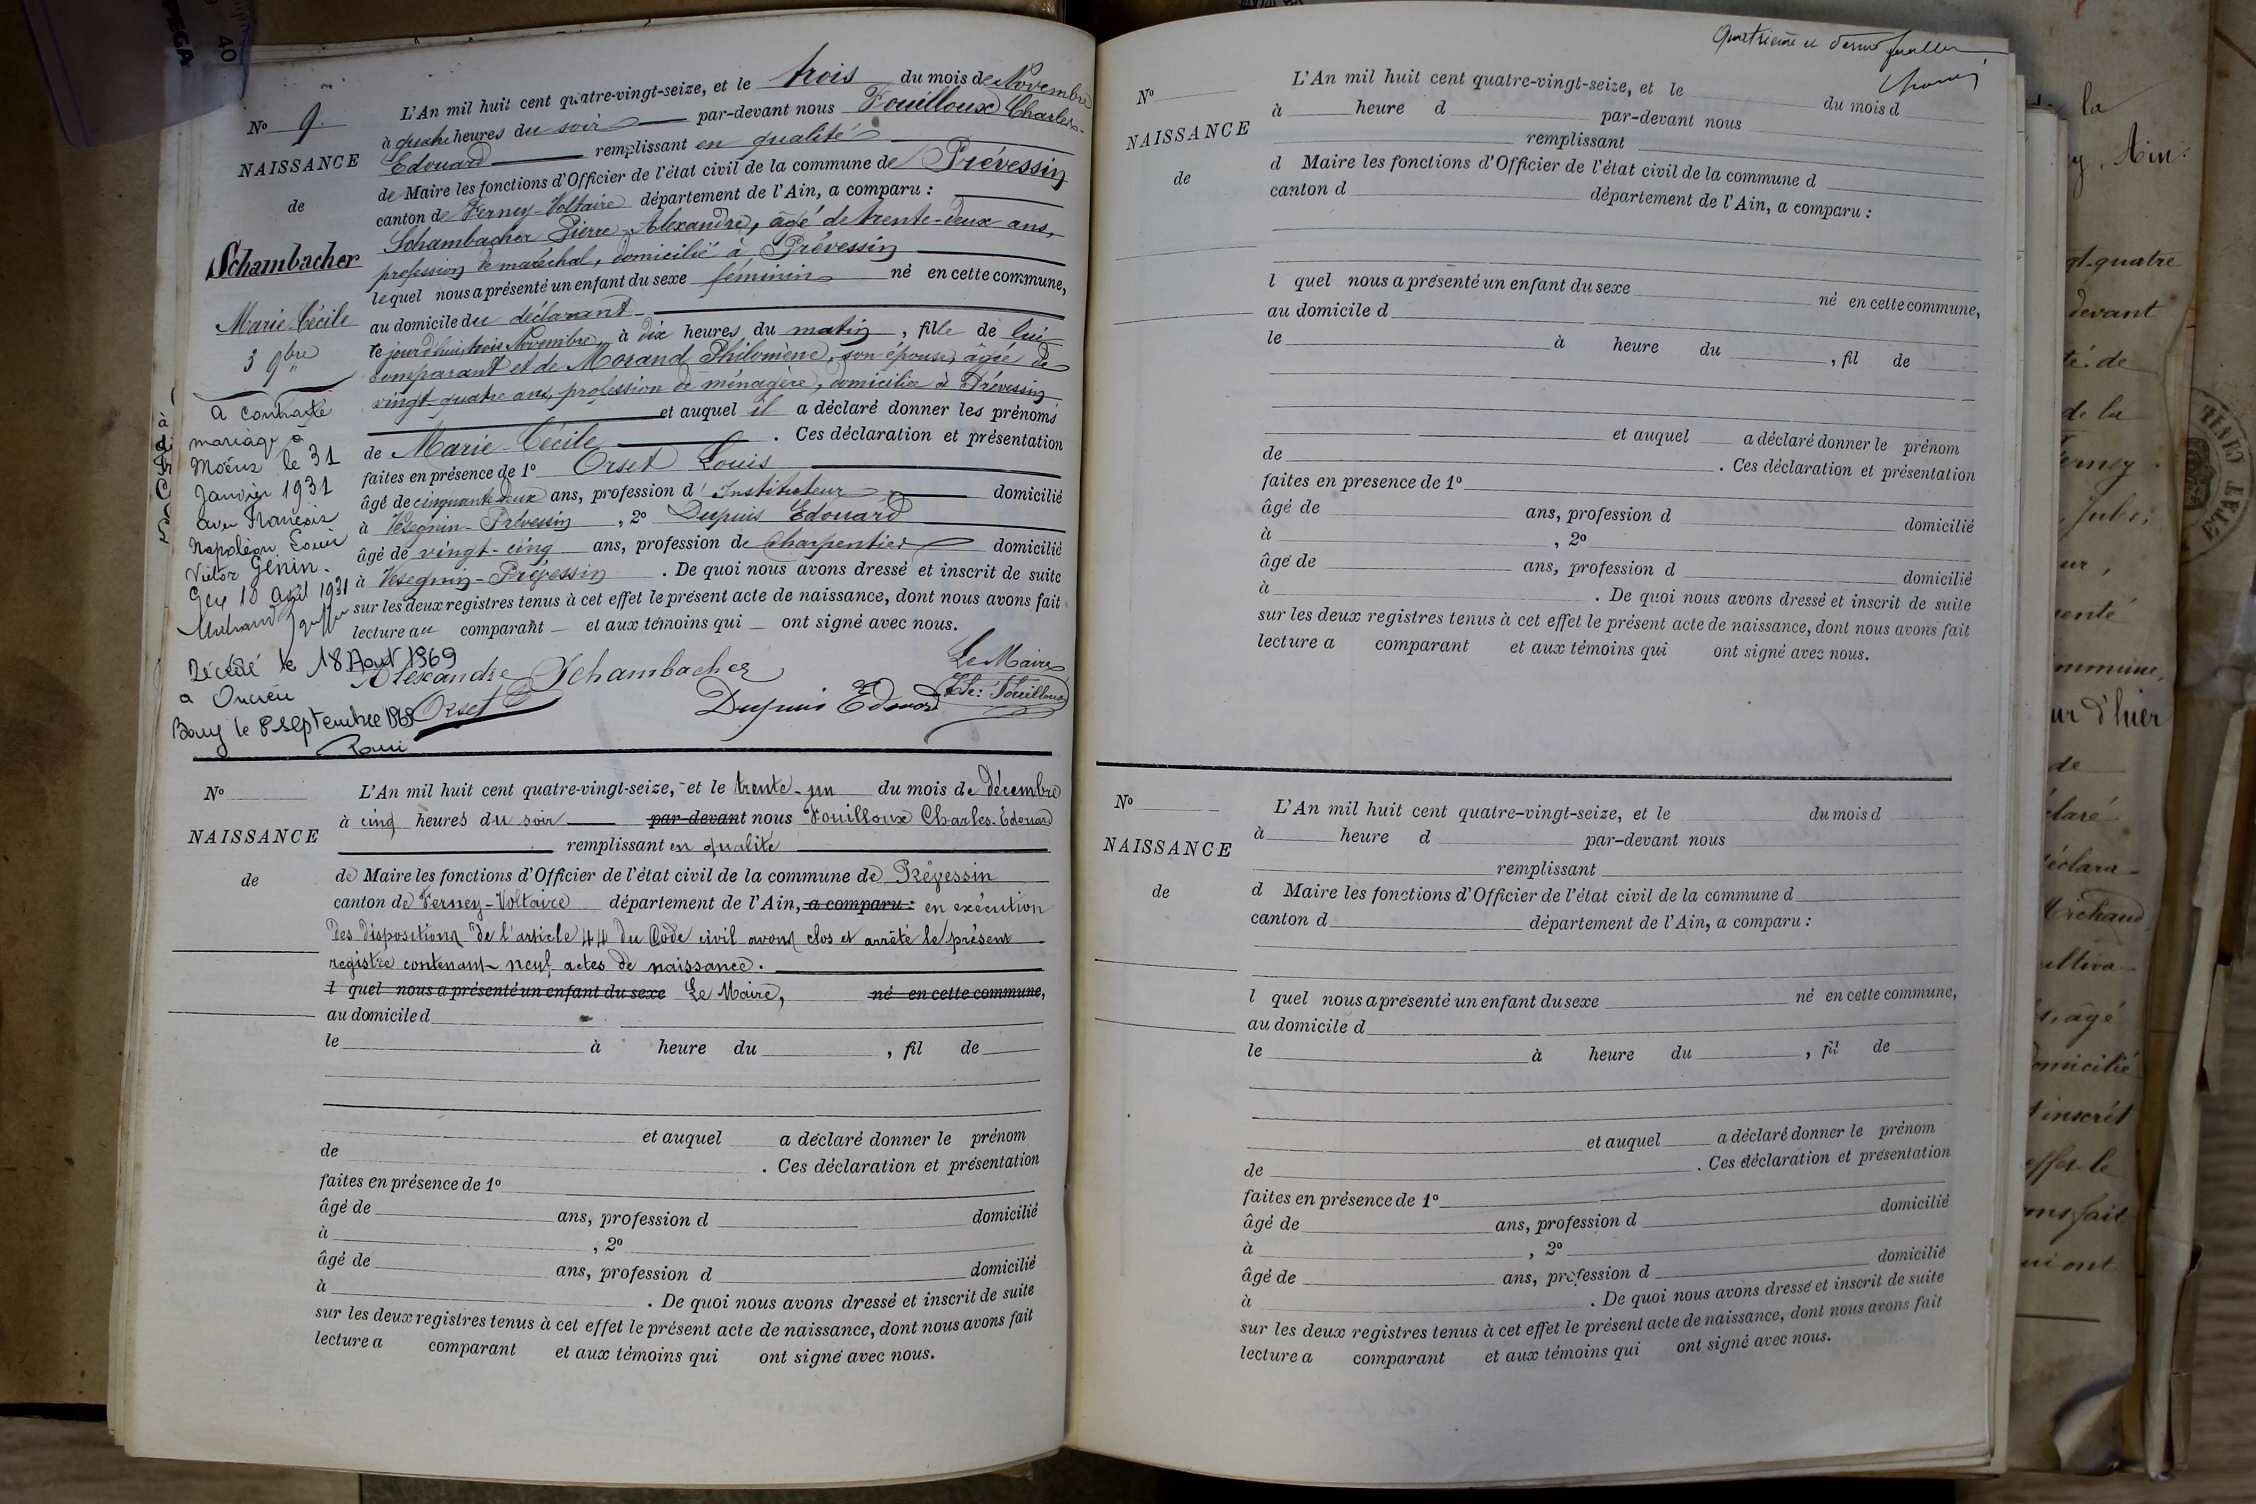 40
N° 9.
NAISSANCE
de
Schambacher
Marie-Cécile
3 9bre
a contracté
mariage à
Moëns le 31
Janvier 1931
avec François
Napoléon Louis
Victor Génin.
Gex 10 août 1931
Décédé le 18 Aout 1969
a Oncieu
Bourg le 8 septembre 1969
L'An mil huit cent quatre-vingt-seize, et le trois du mois de Novembre
à quatre heures du soir par-devant nous Fouilloux Charles-
Edouard remplissant en qualité
de Maire les fonctions d'Officier de l'état civil de la commune de Prévessin
canton de Ferney-Voltaire département de l'Ain, a comparu :
Schambacher Pierre Alexandre, âgé de trente-deux ans,
profession de maréchal, domicilié à Prévessin
lequel nous a présenté un enfant du sexe féminin né en cette commune,
au domicile du déclarant
le jourd'hui trois Novembre, à dix heures du matin, fille de lui
comparant et de Morand Philomène, son épouse, âgée de
vingt-quatre ans, profession de ménagère, domiciliée à Prévessin
et auquel il a déclaré donner les prénoms
de Marie-Cécile . Ces déclaration et présentation
faites en présence de 1° Orset Louis
âgé de cinquante-deux ans, profession d'Instituteur domicilié
à Vésegnin-Prévessin, 2° Dupuis Edouard
âgé de vingt-cinq ans, profession de charpentier domicilié
à Vésegnin-Prévessin . De quoi nous avons dressé et inscrit de suite
sur les deux registres tenus à cet effet le présent acte de naissance, dont nous avons fait
lecture au comparant et aux témoins qui ont signé avec nous.
Alexandre Schambacher
Le Maire
Orset
Dupuis Edouard
Ede: Fouilloux
N°
NAISSANCE
de
L'An mil huit cent quatre-vingt-seize, et le trente-un du mois de décembre
à cinq heures du soir par-devant nous Fouilloux Charles-Edouard
remplissant en qualité
de Maire les fonctions d'Officier de l'état civil de la commune de Prévessin
canton de Ferney-Voltaire département de l'Ain, a comparu : en exécution
des dispositions de l'article 44 du Code civil avons clos et arrêté le présent
registre contenant neuf actes de naissance.
l quel nous a présenté un enfant du sexe Le Maire, né en cette commune,
au domicile d
le à heure du , fil de
et auquel a déclaré donner le prénom
de . Ces déclaration et présentation
faites en présence de 1°
âgé de ans, profession d domicilié
à , 2°
âgé de ans, profession d domicilié
à . De quoi nous avons dressé et inscrit de suite
sur les deux registres tenus à cet effet le présent acte de naissance, dont nous avons fait
lecture a comparant et aux témoins qui ont signé avec nous.
Quatrième et dernier feuillet
N°
NAISSANCE
de
L'An mil huit cent quatre-vingt-seize, et le du mois d
à heure d par-devant nous
remplissant
d Maire les fonctions d'Officier de l'état civil de la commune d
canton d département de l'Ain, a comparu :
l quel nous a présenté un enfant du sexe né en cette commune,
au domicile d
le à heure du , fil de
et auquel a déclaré donner le prénom
de . Ces déclaration et présentation
faites en presence de 1°
âgé de ans, profession d domicilié
à , 2°
âgé de ans, profession d domicilié
à . De quoi nous avons dressé et inscrit de suite
sur les deux registres tenus à cet effet le présent acte de naissance, dont nous avons fait
lecture a comparant et aux témoins qui ont signé avec nous.
N°
NAISSANCE
de
L'An mil huit cent quatre-vingt-seize, et le du mois d
à heure d par-devant nous
remplissant
d Maire les fonctions d'Officier de l'état civil de la commune d
canton d département de l'Ain, a comparu :
l quel nous a présenté un enfant du sexe né en cette commune,
au domicile d
le à heure du , fil de
et auquel a déclaré donner le prénom
de . Ces déclaration et présentation
faites en présence de 1°
âgé de ans, profession d domicilié
à , 2°
âgé de ans, profession d domicilié
à . De quoi nous avons dressé et inscrit de suite
sur les deux registres tenus à cet effet le présent acte de naissance, dont nous avons fait
lecture a comparant et aux témoins qui ont signé avec nous.
la
Ain
devant
de
de la
mmune,
d'hier
de
ultiva-
âgé
inscrit
le
ont
ETAT